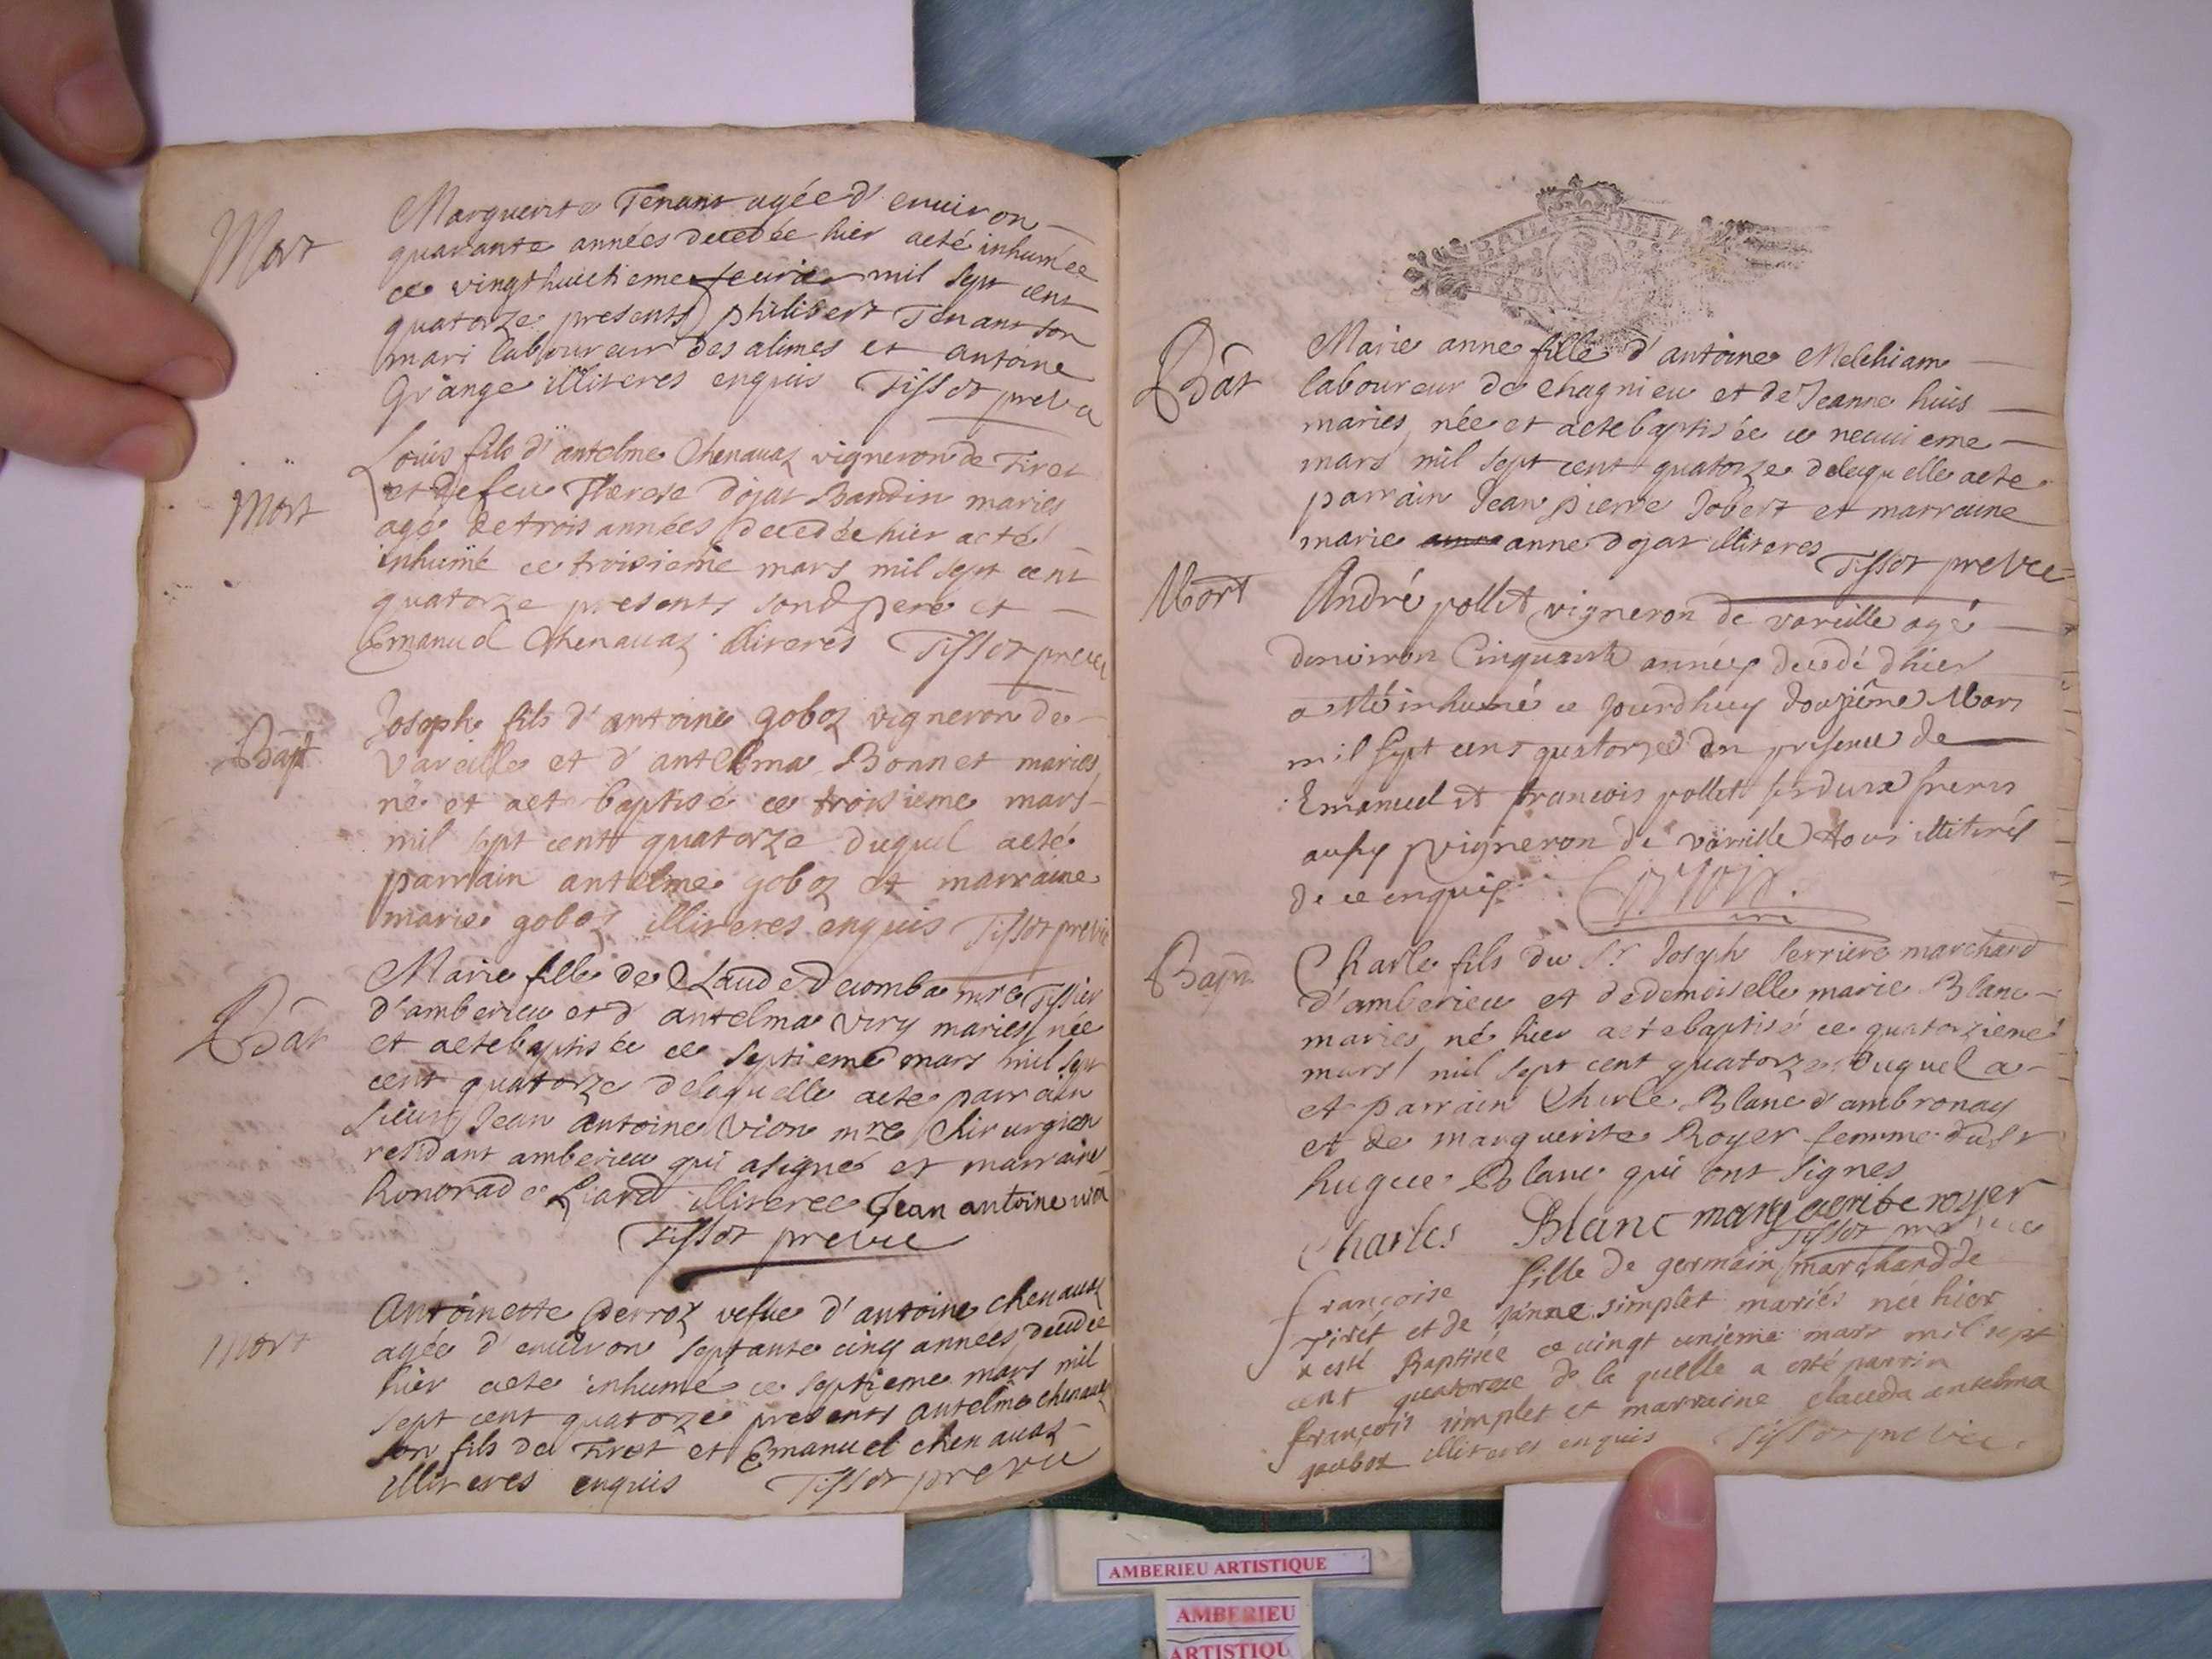 Mort
Marguerite Tenant agée d' enuiron
quarante années decedée hier aeté inhumée
ce vingthuictieme feurier mil sept cent
quatorze presents philibert Tenant son
mari laboureur des alimes et antoine
Grange illiteres enquis Tissot prevre
Mort
Louis fils d' antelme Chenauaz vigneron de Tiret
et de feue Therese dojat Bandin maries
agé de trois années decedée hier acté
inhumé ce troisieme mars mil sept cent
quatorze presents sond pere et
Emanuel Chenauaz illiteres Tissot prevre
Bapt
Joseph fils d' antoine goboz vigneron de
Vareille et d' antelma Bonnet maries
né et aet baptisé ce troisieme mars
mil sept cent quatorze duquel aeté
parrain antelme goboz et marraine
marie goboz illiteres enquis Tissot prevre
Bât
Marie fille de Claude decomba mre Tissier
d'amberieu et d' antelma viry maries née
et aetebaptisée ce septieme mars mil sept
cent quatorze delaquelle aete parrain
sieur Jean antoine Vion mre Chirurgien
residant amberieu qui asigné et marraine
honorade Liard illiteree Jean antoine vion
Tissot prevre
Mort
Antoinette Perroz vefue d' antoine chenauaz
agée d' enuiron septante cinq années decedée
hier aete inhumé ce septieme mars mil
sept cent quatorze presents antelme chenauaz
son fils de Tiret et Emanuel chenauaz
illiteres enquis Tissot prevre
Bât
Marie anne fille d' antoine Melchiam
laboureur de Chagnieu et de Jeanne huis
maries née et aetebaptisée ce neuuieme
mars mil sept cent quatorze delaquelle aete
parrain Jean pierre Jobert et marraine
marie anne dojat illiteres Tissot prevre
Mort
André pollet vigneron de vareille agé
denviron Cinquante années decedé dhier
a eté inhumé ce jourdhuy douzième Mars
mil sept cens quatorze en presence de
Emanuel et francois pollet ses deux freres
aussy vigneron de vareille tous illiterés
de ce enquis
Bapt
Charle fils du Sr Joseph serriere marchand
d'amberieu et dedemoiselle marie Blanc
maries né hier aetebaptisé ce quatorzieme
mars mil sept cent quatorze duquel a
et parrain Charle Blanc d'ambronay
et de marguerite Royer femme du sr
hugue Blanc qui ont signes
Charles Blanc marguerite royer
Tissot prevre
françoise fille de germain marchand de
Tiret et de Janne simplet mariés née hier
a esté Baptisée ce vingt unieme mars mil sept
cent quatorze de la quelle a esté parrin
françois simplet et marraine clauda antelma
goboz illiteres enquis Tissot prevre
AMBERIEU ARTISTIQUE
AMBERIEU
ARTISTIQU